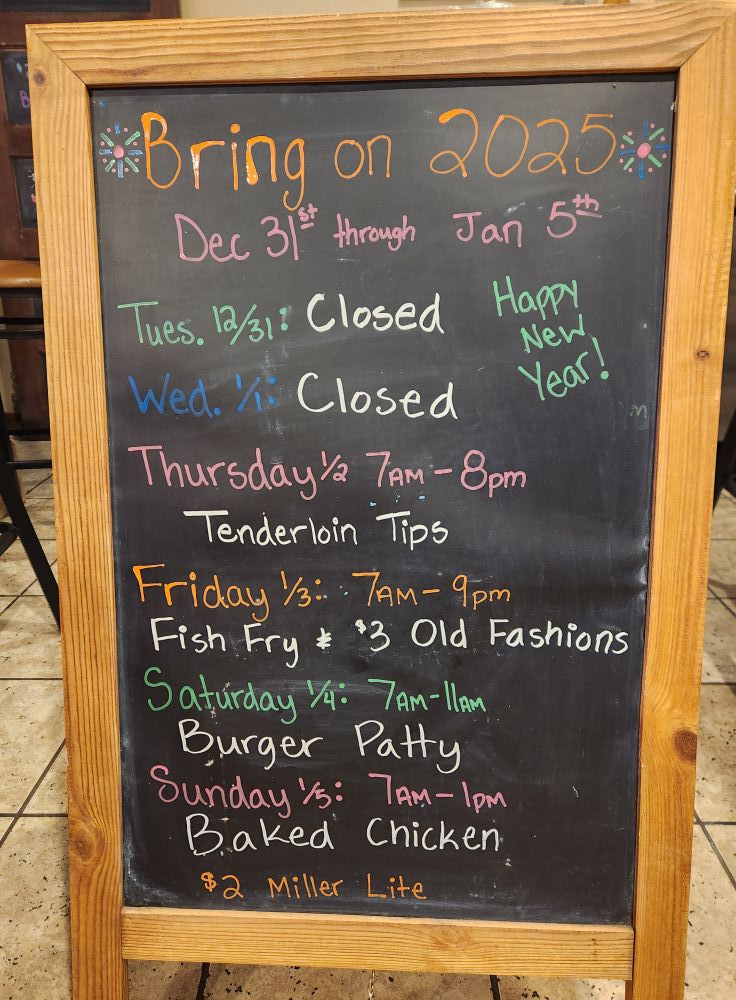 Bring on 2025
Dec 31st through Jan 5th
Happy
New
Year!
Tues. 12/31: Closed
Wed. 1/1: Closed
Thursday 1/2 7AM - 8pm
Tenderloin Tips
Friday 1/3: 7AM - 9pm
Fish Fry & $3 Old Fashions
Saturday 1/4: 7AM - 11AM
Burger Patty
Sunday 1/5: 7AM - 1pm
Baked Chicken
$2 Miller Lite